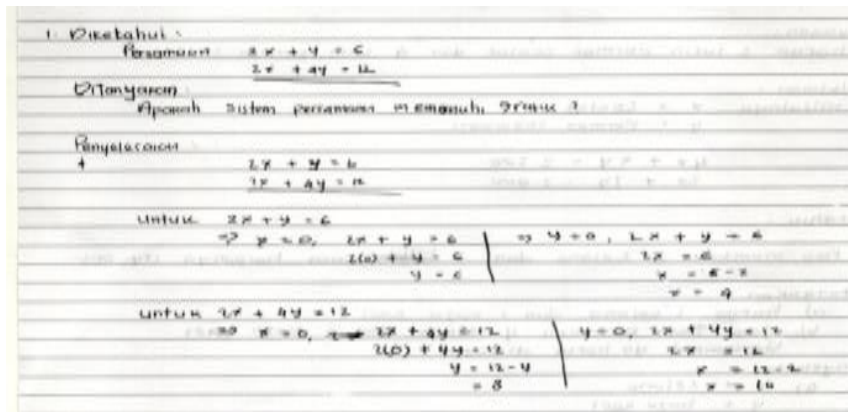 1. Diketahui :
Persamaan 2x + y = 6
2x + 4y = 12
Ditanyakan
Apakah sistem persamaan memenuhi grafik ?
Penyelesaian
2x + y = 6
2x + 4y = 12
Untuk 2x + y = 6
⇒ x = 0, 2x + y = 6 ⇒ y = 0, 2x + y = 6
2(0) + y = 6 2x = 6
y = 6 x = 6 - 2
x = 4
Untuk 2x + 4y = 12
⇒ x = 0, 2x + 4y = 12 y = 0, 2x + 4y = 12
2(0) + 4y = 12 2x = 12
y = 12 - 4 x = 12 - 2
= 8 x = 10